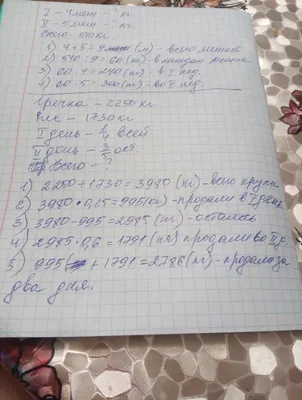 I - 4 меш - ? кг
II - 5 меш - ? кг
Всего - 540 кг
1) 4+5=9 (м) - всего мешков
2) 540 : 9 = 60 (кг) - в каждом мешке
3) 60 · 4 = 240 (кг) - в I
4) 60 · 5 = 300 (кг) - во II
Гречка - 2250 кг
Рис - 1730 кг
I день - 1/4 всей
II день - 3/5 ост.
Всего - ?
1) 2250 + 1730 = 3980 (кг) - всего крупы
2) 3980 · 0,25 = 995 (кг) - продали в I день
3) 3980 - 995 = 2985 (кг) - осталось
4) 2985 · 0,6 = 1791 (кг) продали во II д.
5) 995 + 1791 = 2786 (кг) - продали за
два дня.